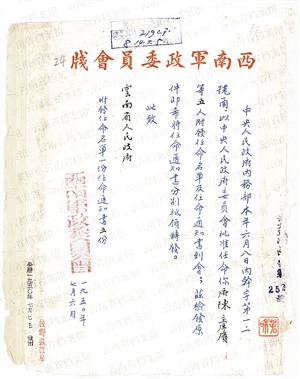 21927
8 14 5-8
24
西南軍政委員會牋
252
中央人民政府內務部本年六月八日內幹字第一二
號函:以中央人民政府委員會批准任命你府陳主席賡
等五人附發任命名單及任命通知書到會;茲檢發原
件即希將任命通知書分别轉發。
此致
雲南省人民政府
附發任命名單一份任命通知書五份
一九五〇年
七月六日